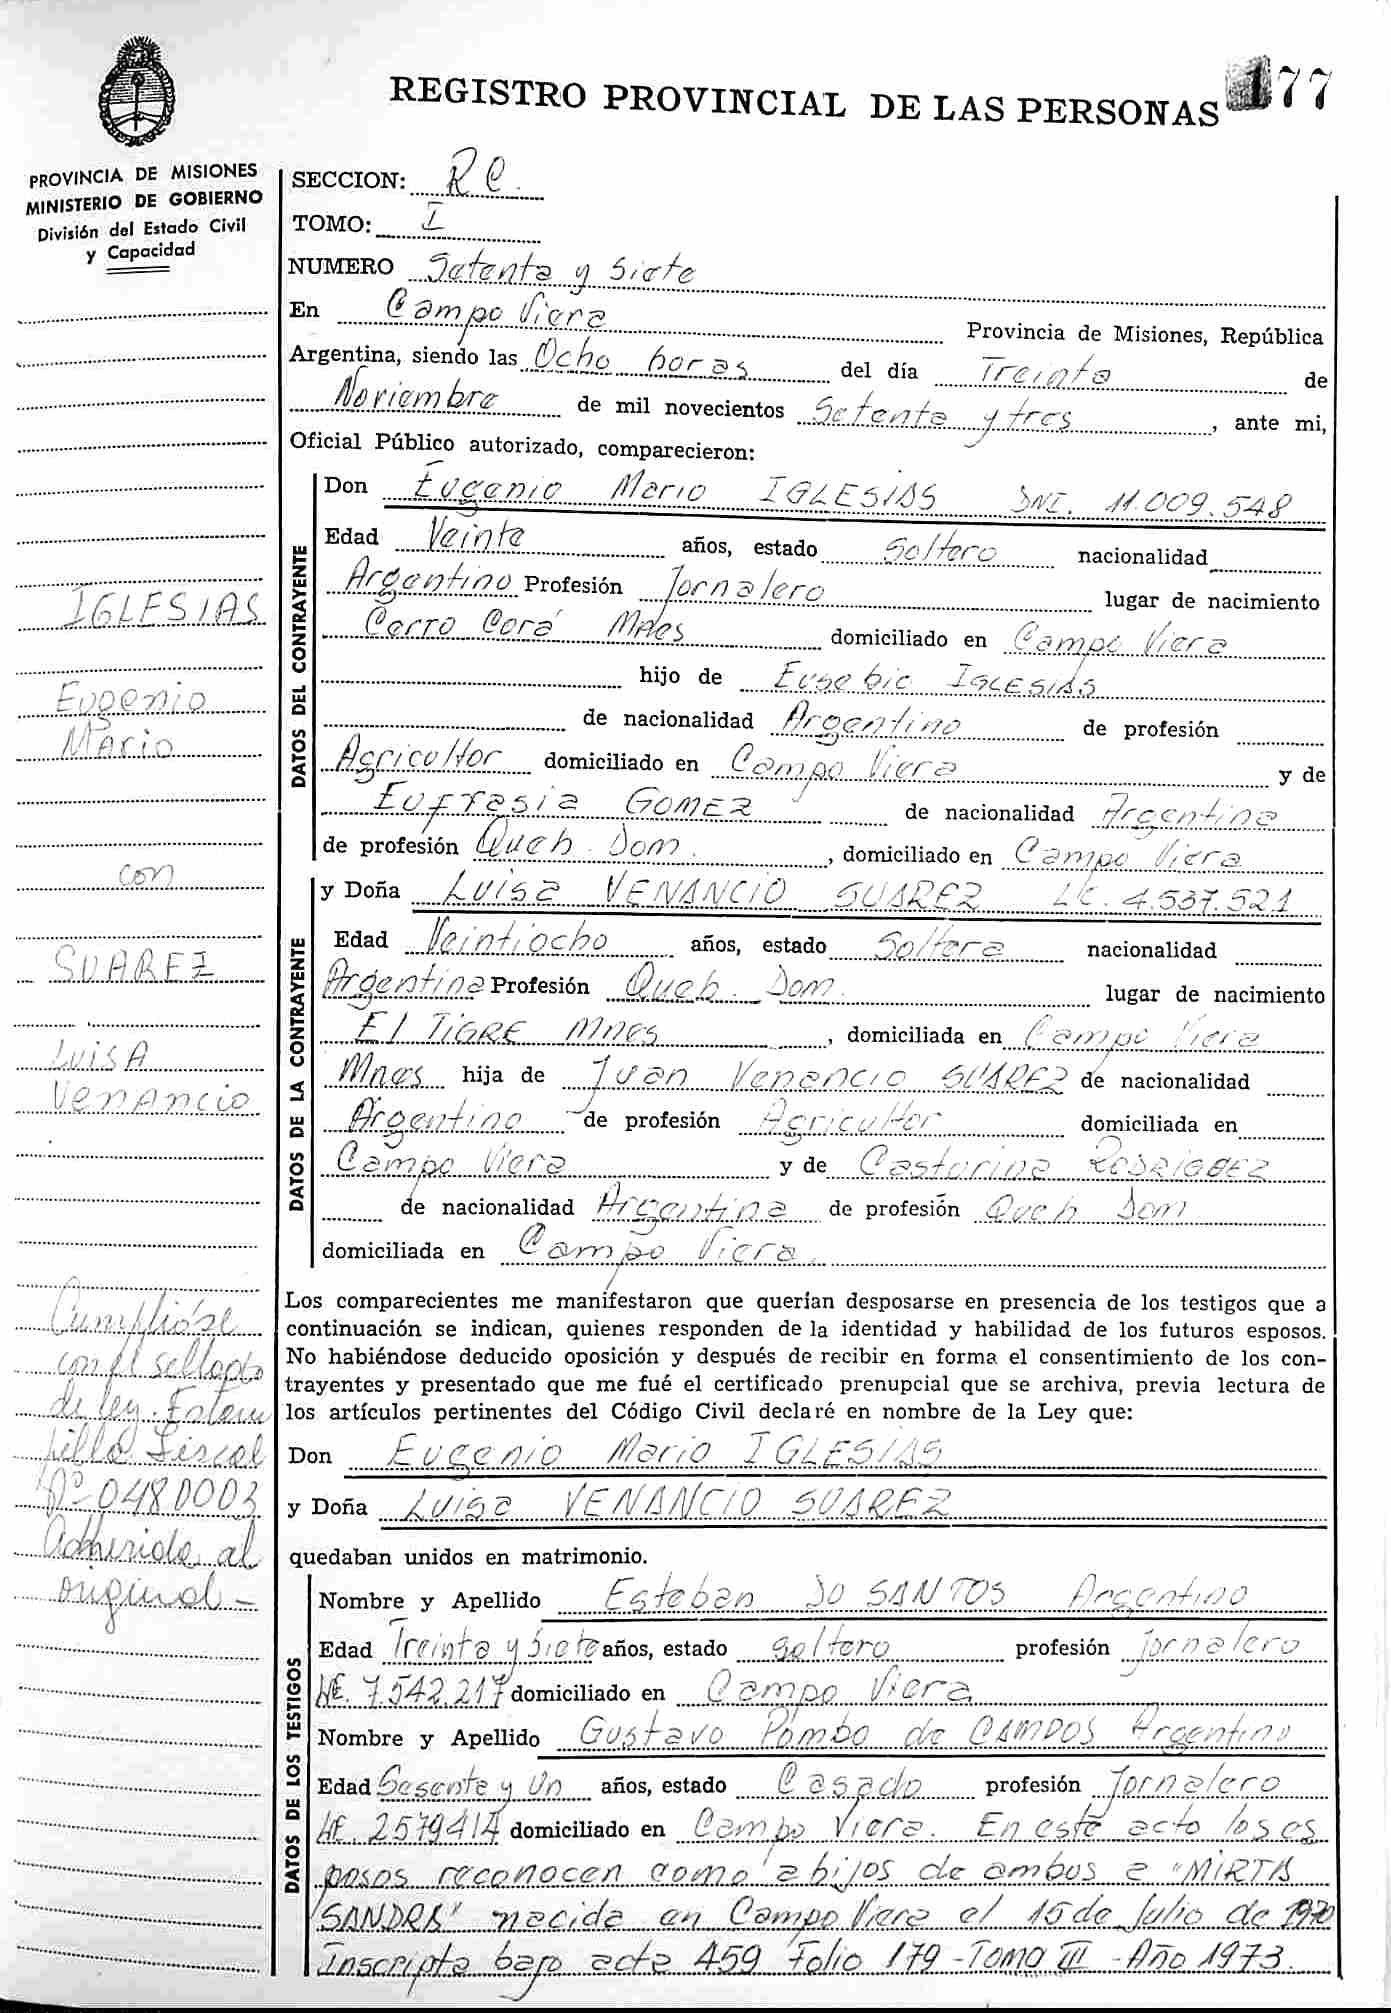 REGISTRO PROVINCIAL DE LAS PERSONAS 177
PROVINCIA DE MISIONES
MINISTERIO DE GOBIERNO
División del Estado Civil
y Capacidad
SECCION: R C.
TOMO: I
NUMERO Setenta y Siete
En Campo Viera Provincia de Misiones, República
Argentina, siendo las Ocho horas del día Treinta de
Noviembre de mil novecientos Setenta y tres, ante mi,
Oficial Público autorizado, comparecieron:
DATOS DEL CONTRAYENTE
Don Eugenio Mario IGLESIAS DNI. 11.009.548
Edad Veinte años, estado Soltero nacionalidad
Argentino Profesión Jornalero lugar de nacimiento
Cerro Corá Mnes domiciliado en Campo Viera
hijo de Eusebio IGLESIAS
de nacionalidad Argentino de profesión
Agricultor domiciliado en Campo Viera y de
Eufrasia GOMEZ de nacionalidad Argentina
de profesión Queh. Dom., domiciliado en Campo Viera
DATOS DE LA CONTRAYENTE
y Doña Luisa VENANCIO SUAREZ LC. 4.537.521
Edad Veintiocho años, estado Soltera nacionalidad
Argentina Profesión Queh. Dom. lugar de nacimiento
El TIGRE Mnes, domiciliada en Campo Viera
Mnes hija de Juan Venancio SUAREZ de nacionalidad
Argentino de profesión Agricultor domiciliada en
Campo Viera y de Castorina RODRIGUEZ
de nacionalidad Argentina de profesión Queh Dom
domiciliada en Campo Viera.
Los comparecientes me manifestaron que querían desposarse en presencia de los testigos que a
continuación se indican, quienes responden de la identidad y habilidad de los futuros esposos.
No habiéndose deducido oposición y después de recibir en forma el consentimiento de los con-
trayentes y presentado que me fué el certificado prenupcial que se archiva, previa lectura de
los artículos pertinentes del Código Civil declaré en nombre de la Ley que:
Don Eugenio Mario IGLESIAS
y Doña Luisa VENANCIO SUAREZ
quedaban unidos en matrimonio.
DATOS DE LOS TESTIGOS
Nombre y Apellido Esteban DO SANTOS Argentino
Edad Treinta y Siete años, estado soltero profesión jornalero
LE. 7.542.217 domiciliado en Campo Viera
Nombre y Apellido Gustavo Pombo de CAMPOS Argentino
Edad Sesenta y Un años, estado Casado profesión Jornalero
LE. 2579414 domiciliado en Campo Viera. En este acto los es
posos reconocen como a hijos de ambos a "MIRTA
SANDRA" nacida en Campo Viera el 15 de Julio de 1970
Inscripta bajo acta 459 Folio 179 - Tomo III - Año 1973.
IGLESIAS
Eugenio
Mario
con
SUAREZ
LUISA
Venancio
Cumplióse
con el sellado
de ley. Estam
pilla Fiscal
Nº 0480003
Adherida al
original -